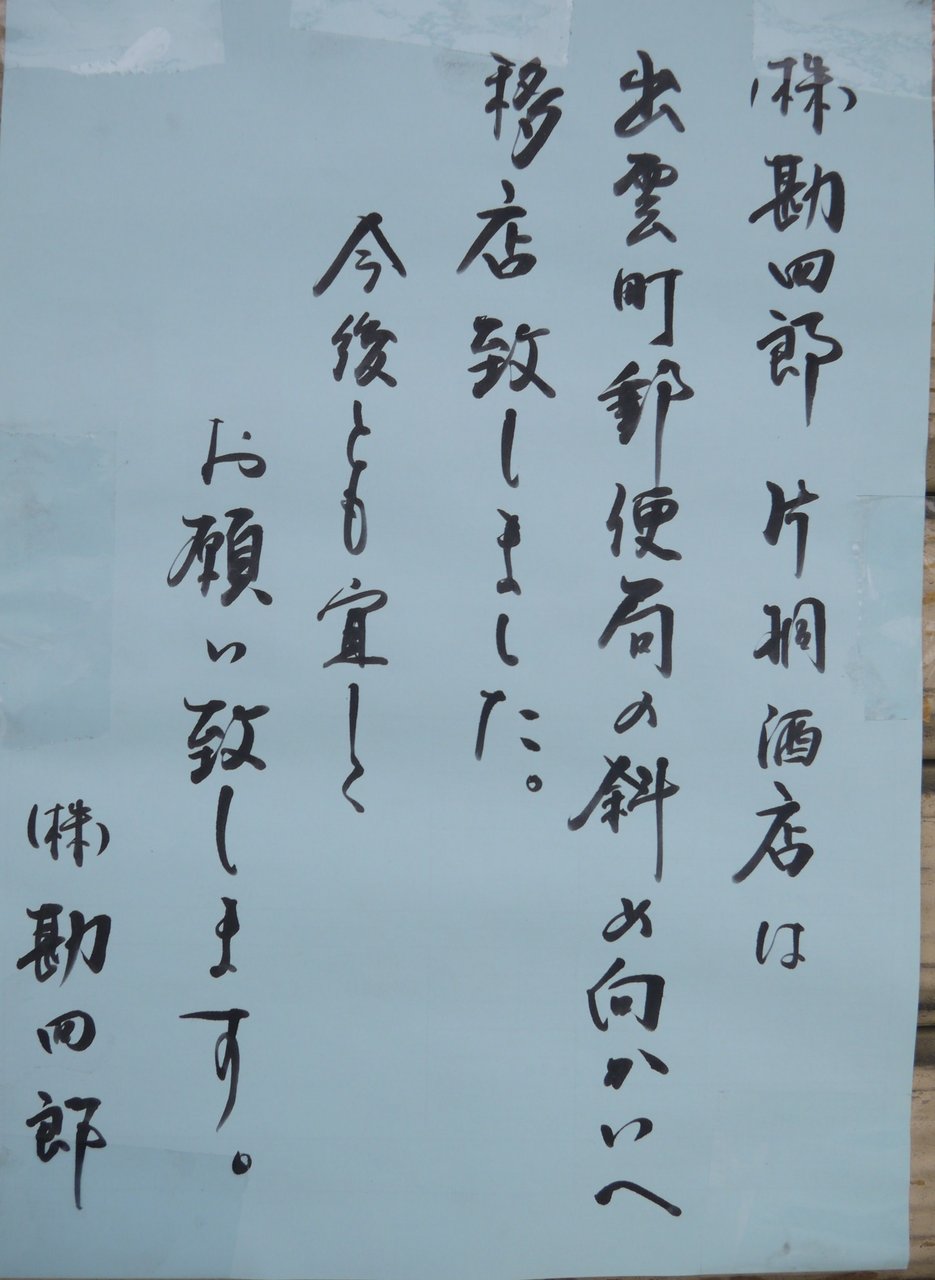 (株)勘四郎 片桐酒店は
出雲町郵便局の斜め向かいへ
移店致しました。
今後とも宜しく
お願い致します。
(株)勘四郎